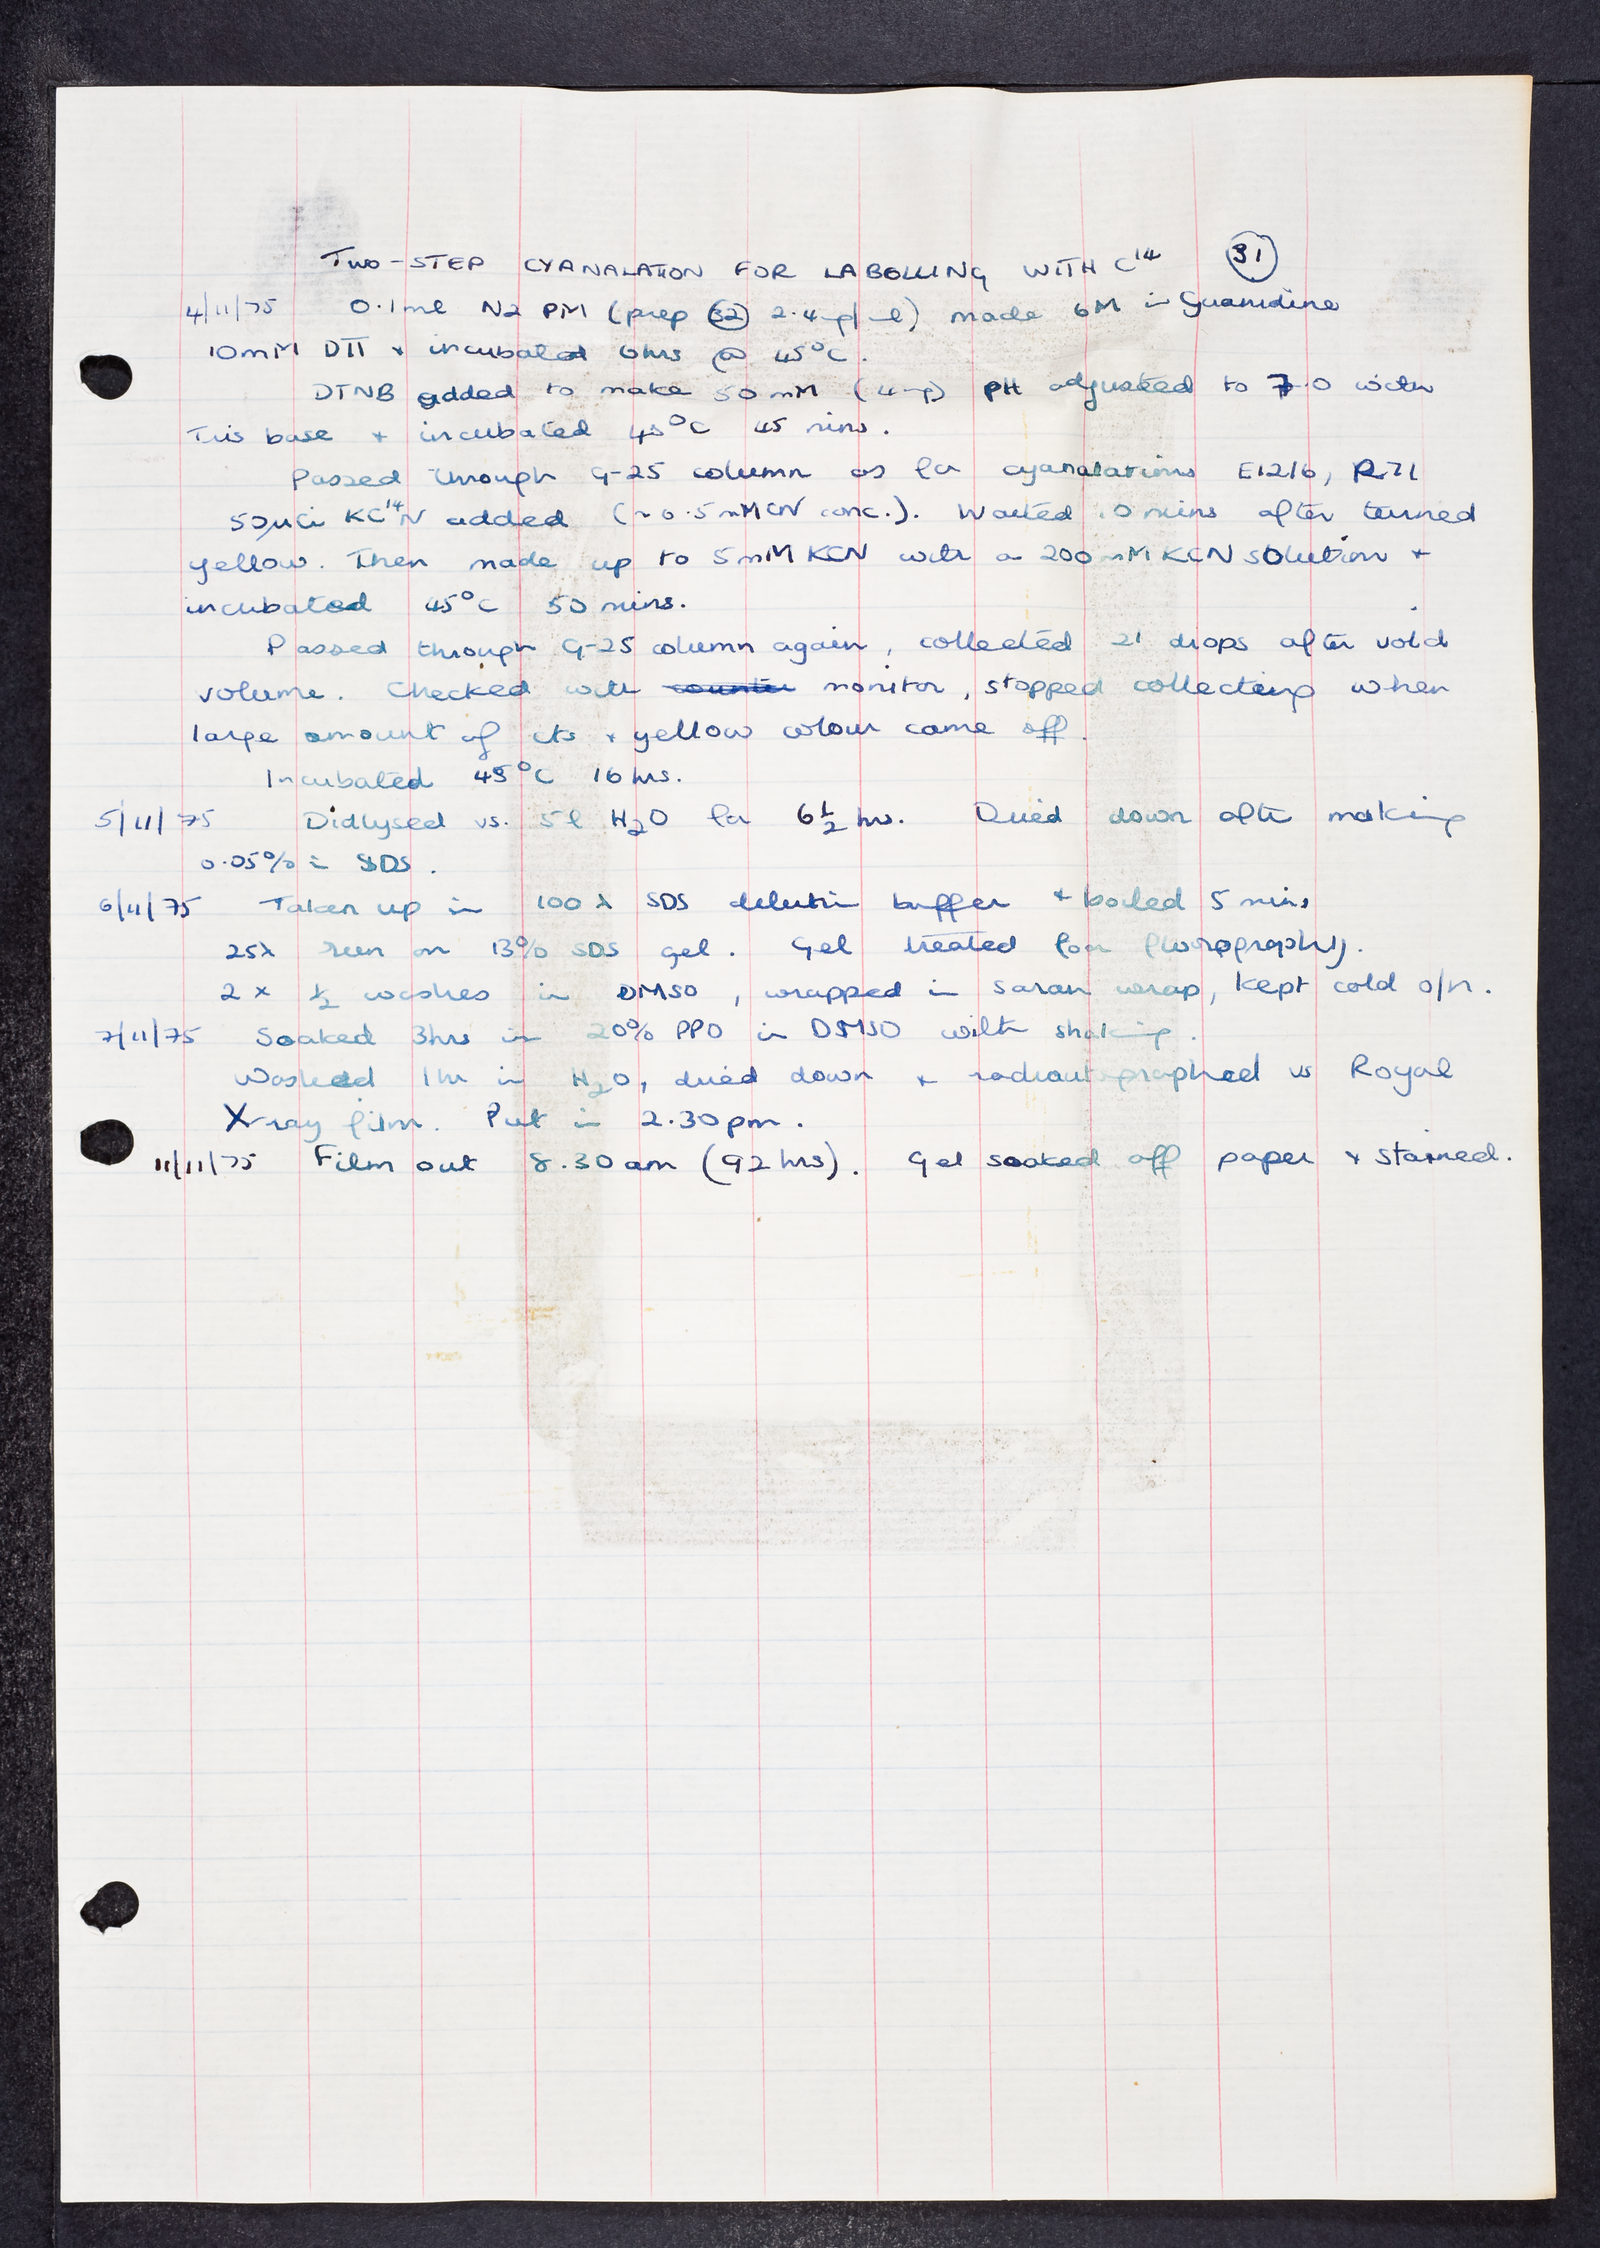 TWO-STEP CYANALATION FOR LABELLING WITH C¹⁴ (31)
4/11/75 0.1ml N2 PM (prep (32) 2.4mg/ml) made 6M in Guanidine
10mM DTT + incubated 6hrs @ 45°C.
DTNB added to make 50mM (4mg) pH adjusted to 7.0 with
Tris base + incubated 45°C 45 mins.
Passed through G-25 column as for cyanalations E1216, R71
50μCi KC¹⁴N added (~0.5mM CN conc.). Waited 10 mins after turned
yellow. Then made up to 5mM KCN with a 200mM KCN solution +
incubated 45°C 50 mins.
Passed through G-25 column again, collected 21 drops after void
volume. Checked with counter monitor, stopped collecting when
large amount of cts + yellow colour came off.
Incubated 45°C 16hrs.
5/11/75 Dialysed vs. 5l H₂O for 6½ hrs. Dried down after making
0.05% in SDS.
6/11/75 Taken up in 100λ SDS dilution buffer + boiled 5 mins
25λ run on 13% SDS gel. Gel treated for fluorography.
2 x ½ washes in DMSO, wrapped in saran wrap, kept cold o/n.
7/11/75 Soaked 3hrs in 20% PPO in DMSO with shaking.
Washed 1hr in H₂O, dried down + radioautographed vs Royal
X-ray film. Put in 2.30pm.
11/11/75 Film out 8.30am (92hrs). Gel soaked off paper + stained.